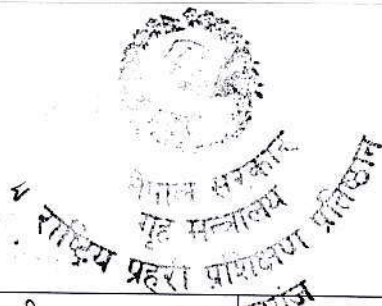 नेपाल सरकार
गृह मन्त्रालय
राष्ट्रिय प्रहरी प्रशिक्षण प्रतिष्ठान